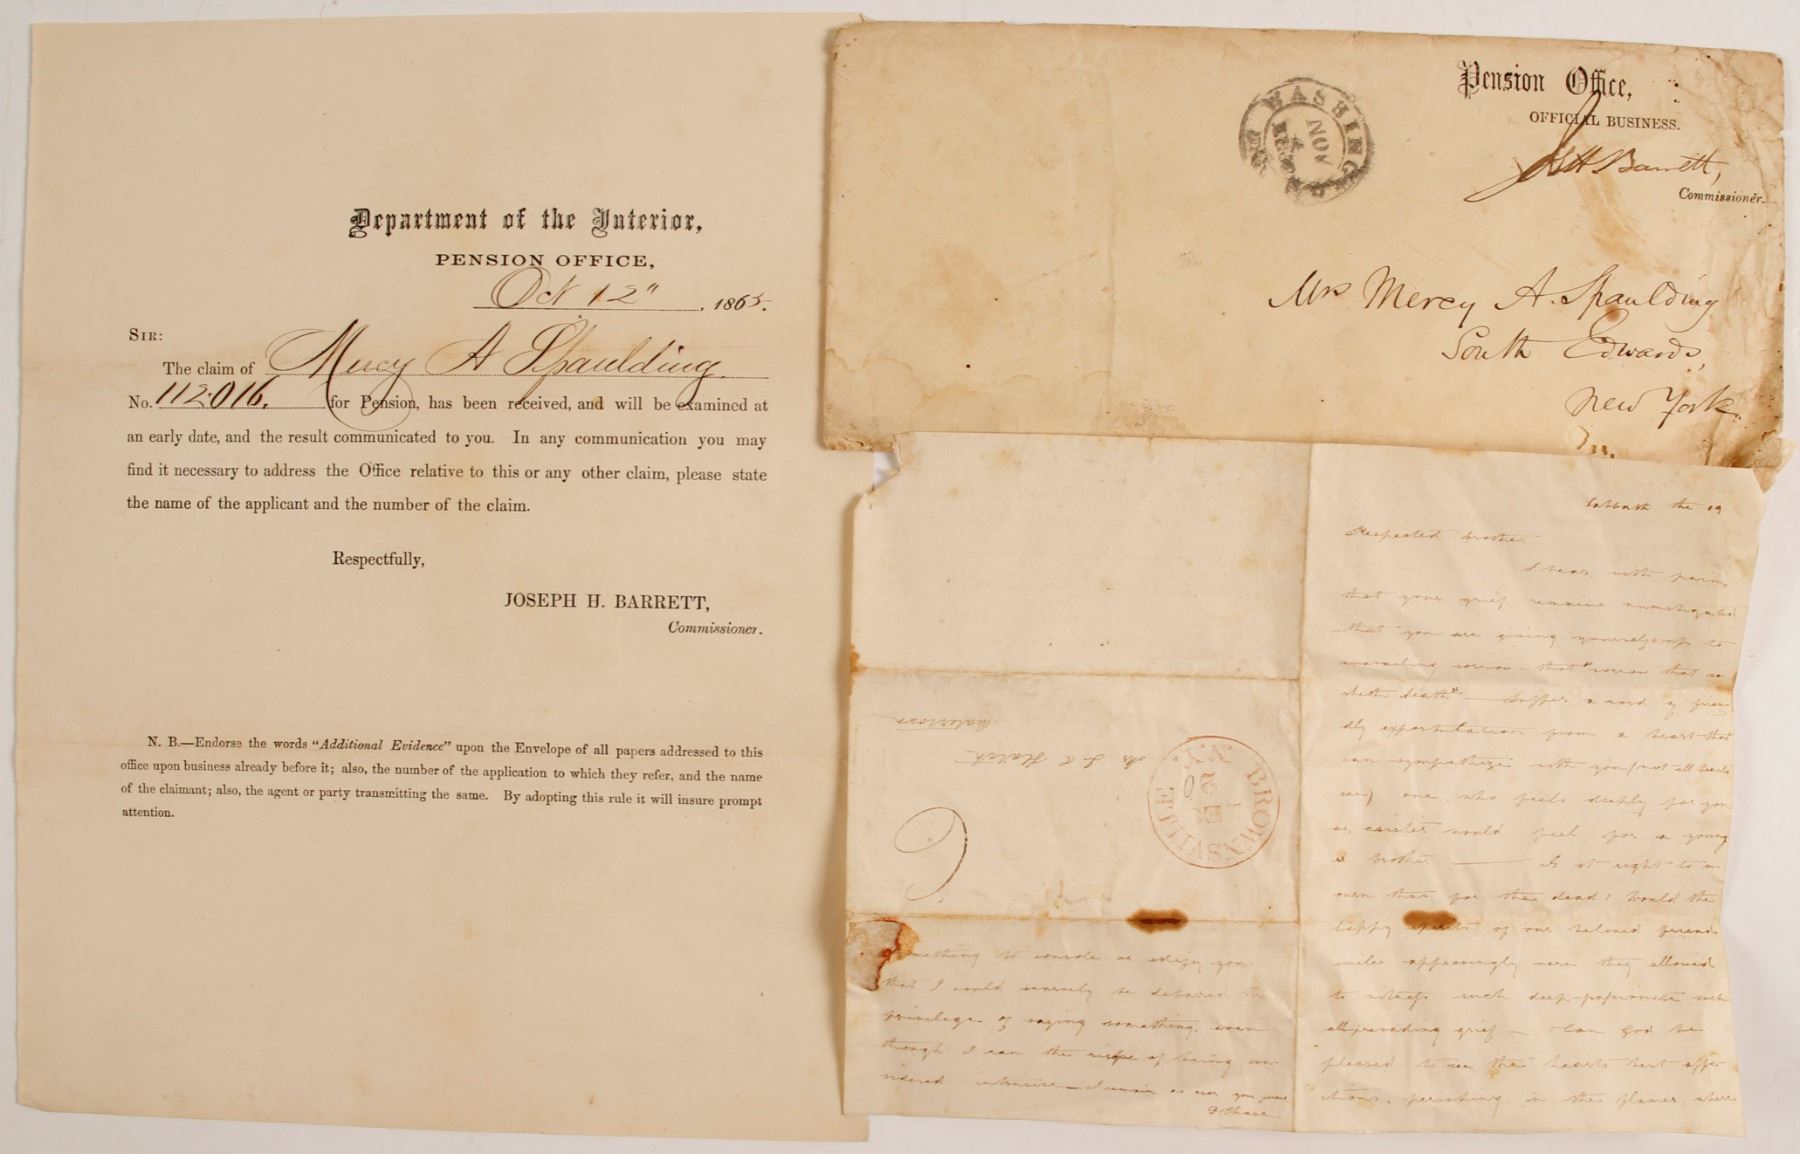 Department of the Interior,
PENSION OFFICE,
Oct 12" , 1865.
SIR:
The claim of Mercy A Spaulding
No. 112.016. for Pension, has been received, and will be examined at
an early date, and the result communicated to you. In any communication you may
find it necessary to address the Office relative to this or any other claim, please state
the name of the applicant and the number of the claim.
Respectfully,
JOSEPH H. BARRETT,
Commissioner.
N. B.—Endorse the words "Additional Evidence" upon the Envelope of all papers addressed to this
office upon business already before it; also, the number of the application to which they refer, and the name
of the claimant; also, the agent or party transmitting the same. By adopting this rule it will insure prompt
attention.
Pension Office,
OFFICIAL BUSINESS.
Barrett,
Commissioner.
WASHING
NOV
Mrs Mercy A. Spaulding
South Edwards,
New York.
Sabbath the 19
Respected brother
I hear with pain
that your grief remains unmitigated
that you are giving yourself up to
unavailing sorrow - that "sorrow that
death" Suffer a word of friend
ly expostulation from a heart that
can sympathize with you (not all hearts
can) one who feels deeply for you
as a sister would feel for a young
brother Is it right to
mourn thus for the dead? Would the
happy spirits of our beloved friends
smile approvingly were they allowed
to witness such deep-passionate such
all-pervading grief - Can God be
pleased to see the hearts best affec
tions, perishing in the flames where
Watertown
BROWNSVILLE
N.Y.
FEB
20
6
something to console or edify you
that I could scarcely be debarred the
privilege of saying something, even
though I ran the risque of being con
sidered intrusive - I remain as ever your friend
Chase